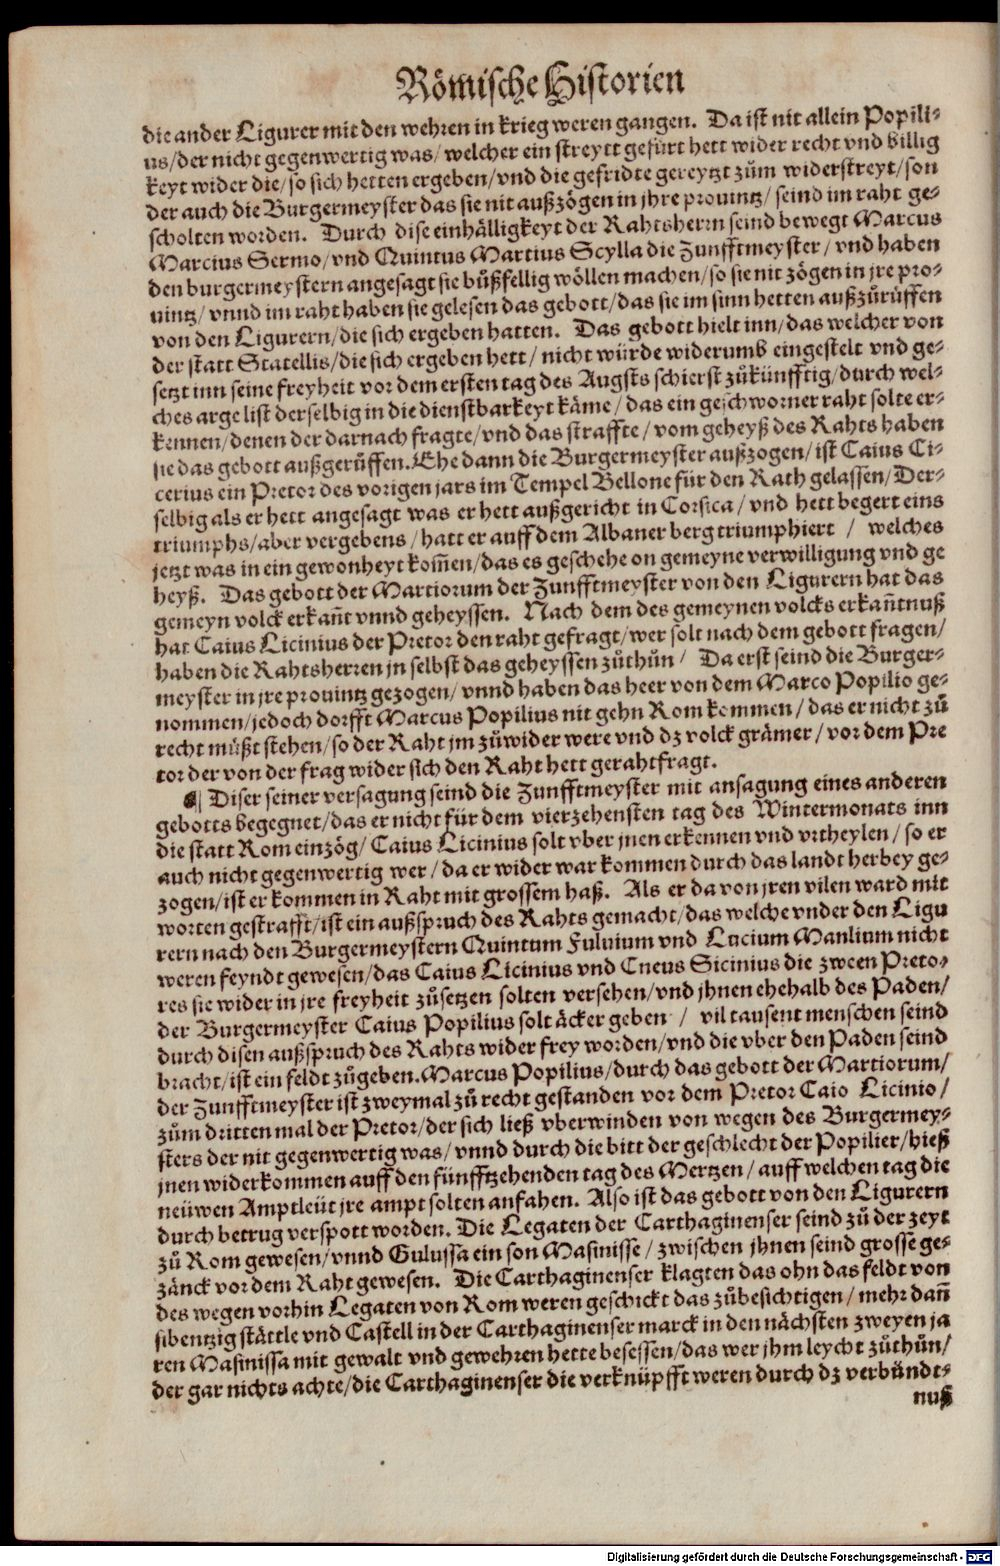 Römische Historien
die ander Ligurer mit den wehren in krieg weren gangen. Da ist nit allein Popili-
us/der nicht gegenwertig was/welcher ein streytt gefürt hett wider recht vnd billig
keyt wider die/so sich hetten ergeben/vnd die gefridte gereytzt zům widerstreyt/son
der auch die Burgermeyster das sie nit außzögen in jhre prouintz/seind im raht ge-
scholten worden. Durch dise einhälligkeyt der Rahtsherrn seind bewegt Marcus
Marcius Sermo/vnd Quintus Martius Scylla die Zunfftmeyster/vnd haben
den burgermeystern angesagt sie bůßfellig wöllen machen/so sie nit zögen in jre pro-
uintz/vnnd im raht haben sie gelesen das gebott/das sie im sinn hetten außzůrůffen
von den Ligurern/die sich ergeben hatten. Das gebott hielt inn/das welcher von
der statt Statellis/die sich ergeben hett/nicht würde widerumb eingestelt vnd ge-
setzt inn seine freyheit vor dem ersten tag des Augsts schierst zůkünfftig/durch wel-
ches arge list derselbig in die dienstbarkeyt käme/das ein geschworner raht solte er-
kennen/denen der darnach fragte/vnd das straffte/vom geheyß des Rahts haben
sie das gebott außgerůffen. Ehe dann die Burgermeyster außzogen/ist Caius Ci-
cerius ein Pretor des vorigen jars im Tempel Bellone für den Rath gelassen/Der-
selbig als er hett angesagt was er hett außgericht in Corsica/vnd hett begert eins
triumphs/aber vergebens/hatt er auff dem Albaner berg triumphiert/welches
jetzt was in ein gewonheyt kom̄en/das es geschehe on gemeyne verwilligung vnd ge
heyß. Das gebott der Martiorum der Zunfftmeyster von den Ligurern hat das
gemeyn volck erkañt vnnd geheyssen. Nach dem des gemeynen volcks erkañtnuß
hat Caius Licinius der Pretor den raht gefragt/wer solt nach dem gebott fragen/
haben die Rahtsherren jn selbst das geheyssen zůthůn/Da erst seind die Burger-
meyster in jre prouintz gezogen/vnnd haben das heer von dem Marco Popilio ge-
nommen/jedoch dorfft Marcus Popilius nit gehn Rom kommen/das er nicht zů
recht můßt stehen/so der Raht jm zůwider were vnd dz volck grämer/vor dem Pre
tor der von der frag wider sich den Raht hett gerahtfragt.
¶ Diser seiner versagung seind die Zunfftmeyster mit ansagung eines anderen
gebotts begegnet/das er nicht für dem vierzehensten tag des Wintermonats inn
die statt Rom einzög/Caius Licinius solt vber jnen erkennen vnd vrtheylen/so er
auch nicht gegenwertig wer/da er wider war kommen durch das landt herbey ge-
zogen/ist er kommen in Raht mit grossem haß. Als er da von jren vilen ward mit
worten gestrafft/ist ein außspruch des Rahts gemacht/das welche vnder den Ligu
rern nach den Burgermeystern Quintum Fuluium vnd Lucium Manlium nicht
weren feyndt gewesen/das Caius Licinius vnd Cneus Sicinius die zween Preto-
res sie wider in jre freyheit zůsetzen solten versehen/vnd jhnen ehehalb des Paden/
der Burgermeyster Caius Popilius solt äcker geben/vil tausent menschen seind
durch disen außspruch des Rahts wider frey worden/vnd die vber den Paden seind
bracht/ist ein feldt zůgeben. Marcus Popilius/durch das gebott der Martiorum/
der Zunfftmeyster ist zweymal zů recht gestanden vor dem Pretor Caio Licinio/
zům dritten mal der Pretor/der sich ließ vberwinden von wegen des Burgermey-
sters der nit gegenwertig was/vnnd durch die bitt der geschlecht der Popilier/hieß
jnen widerkommen auff den fünfftzehenden tag des Mertzen/auff welchen tag die
neüwen Amptleüt jre ampt solten anfahen. Also ist das gebott von den Ligurern
durch betrug verspott worden. Die Legaten der Carthaginenser seind zů der zeyt
zů Rom gewesen/vnnd Gulussa ein son Masinisse/zwischen jhnen seind grosse ge-
zänck vor dem Raht gewesen. Die Carthaginenser klagten das ohn das feldt von
des wegen vorhin Legaten von Rom weren geschickt das zůbesichtigen/mehr dañ
sibentzig stättle vnd Castell in der Carthaginenser marck in den nächsten zweyen ja
ren Masinissa mit gewalt vnd gewehren hette besessen/das wer jhm leycht zůthůn/
der gar nichts achte/die Carthaginenser die verknüpfft weren durch dz verbündt-
nuß
Digitalisierung gefördert durch die Deutsche Forschungsgemeinschaft - DFG